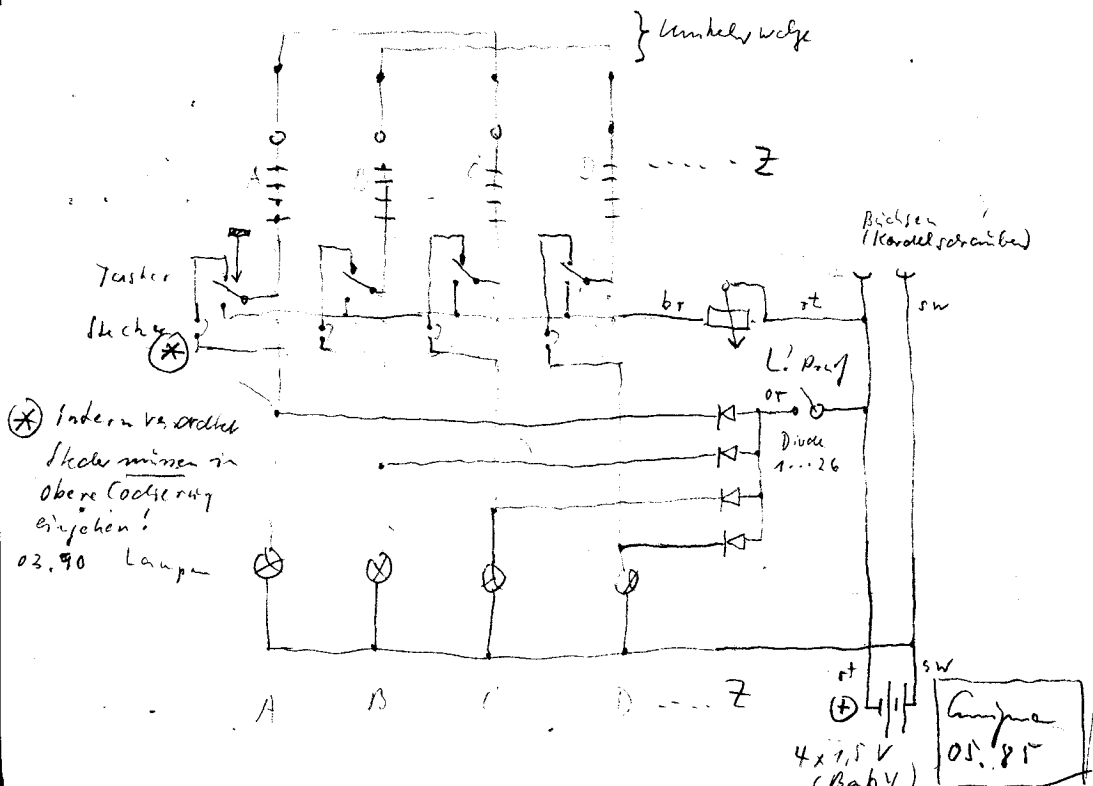 } Umkehrwalze
A B C D ..... Z
Büchsen
(Kordelschrauben)
Taster
Stecker
*
br
rt
sw
L! Prüf
or
Diode
1...26
* Intern verdrahtet
Stecker müssen in
obere Codierung
eingehen!
03.90 Lampen
A B C D .... Z
rt
sw
+
4 x 1,5 V
(Baby)
Enigma
05.'85